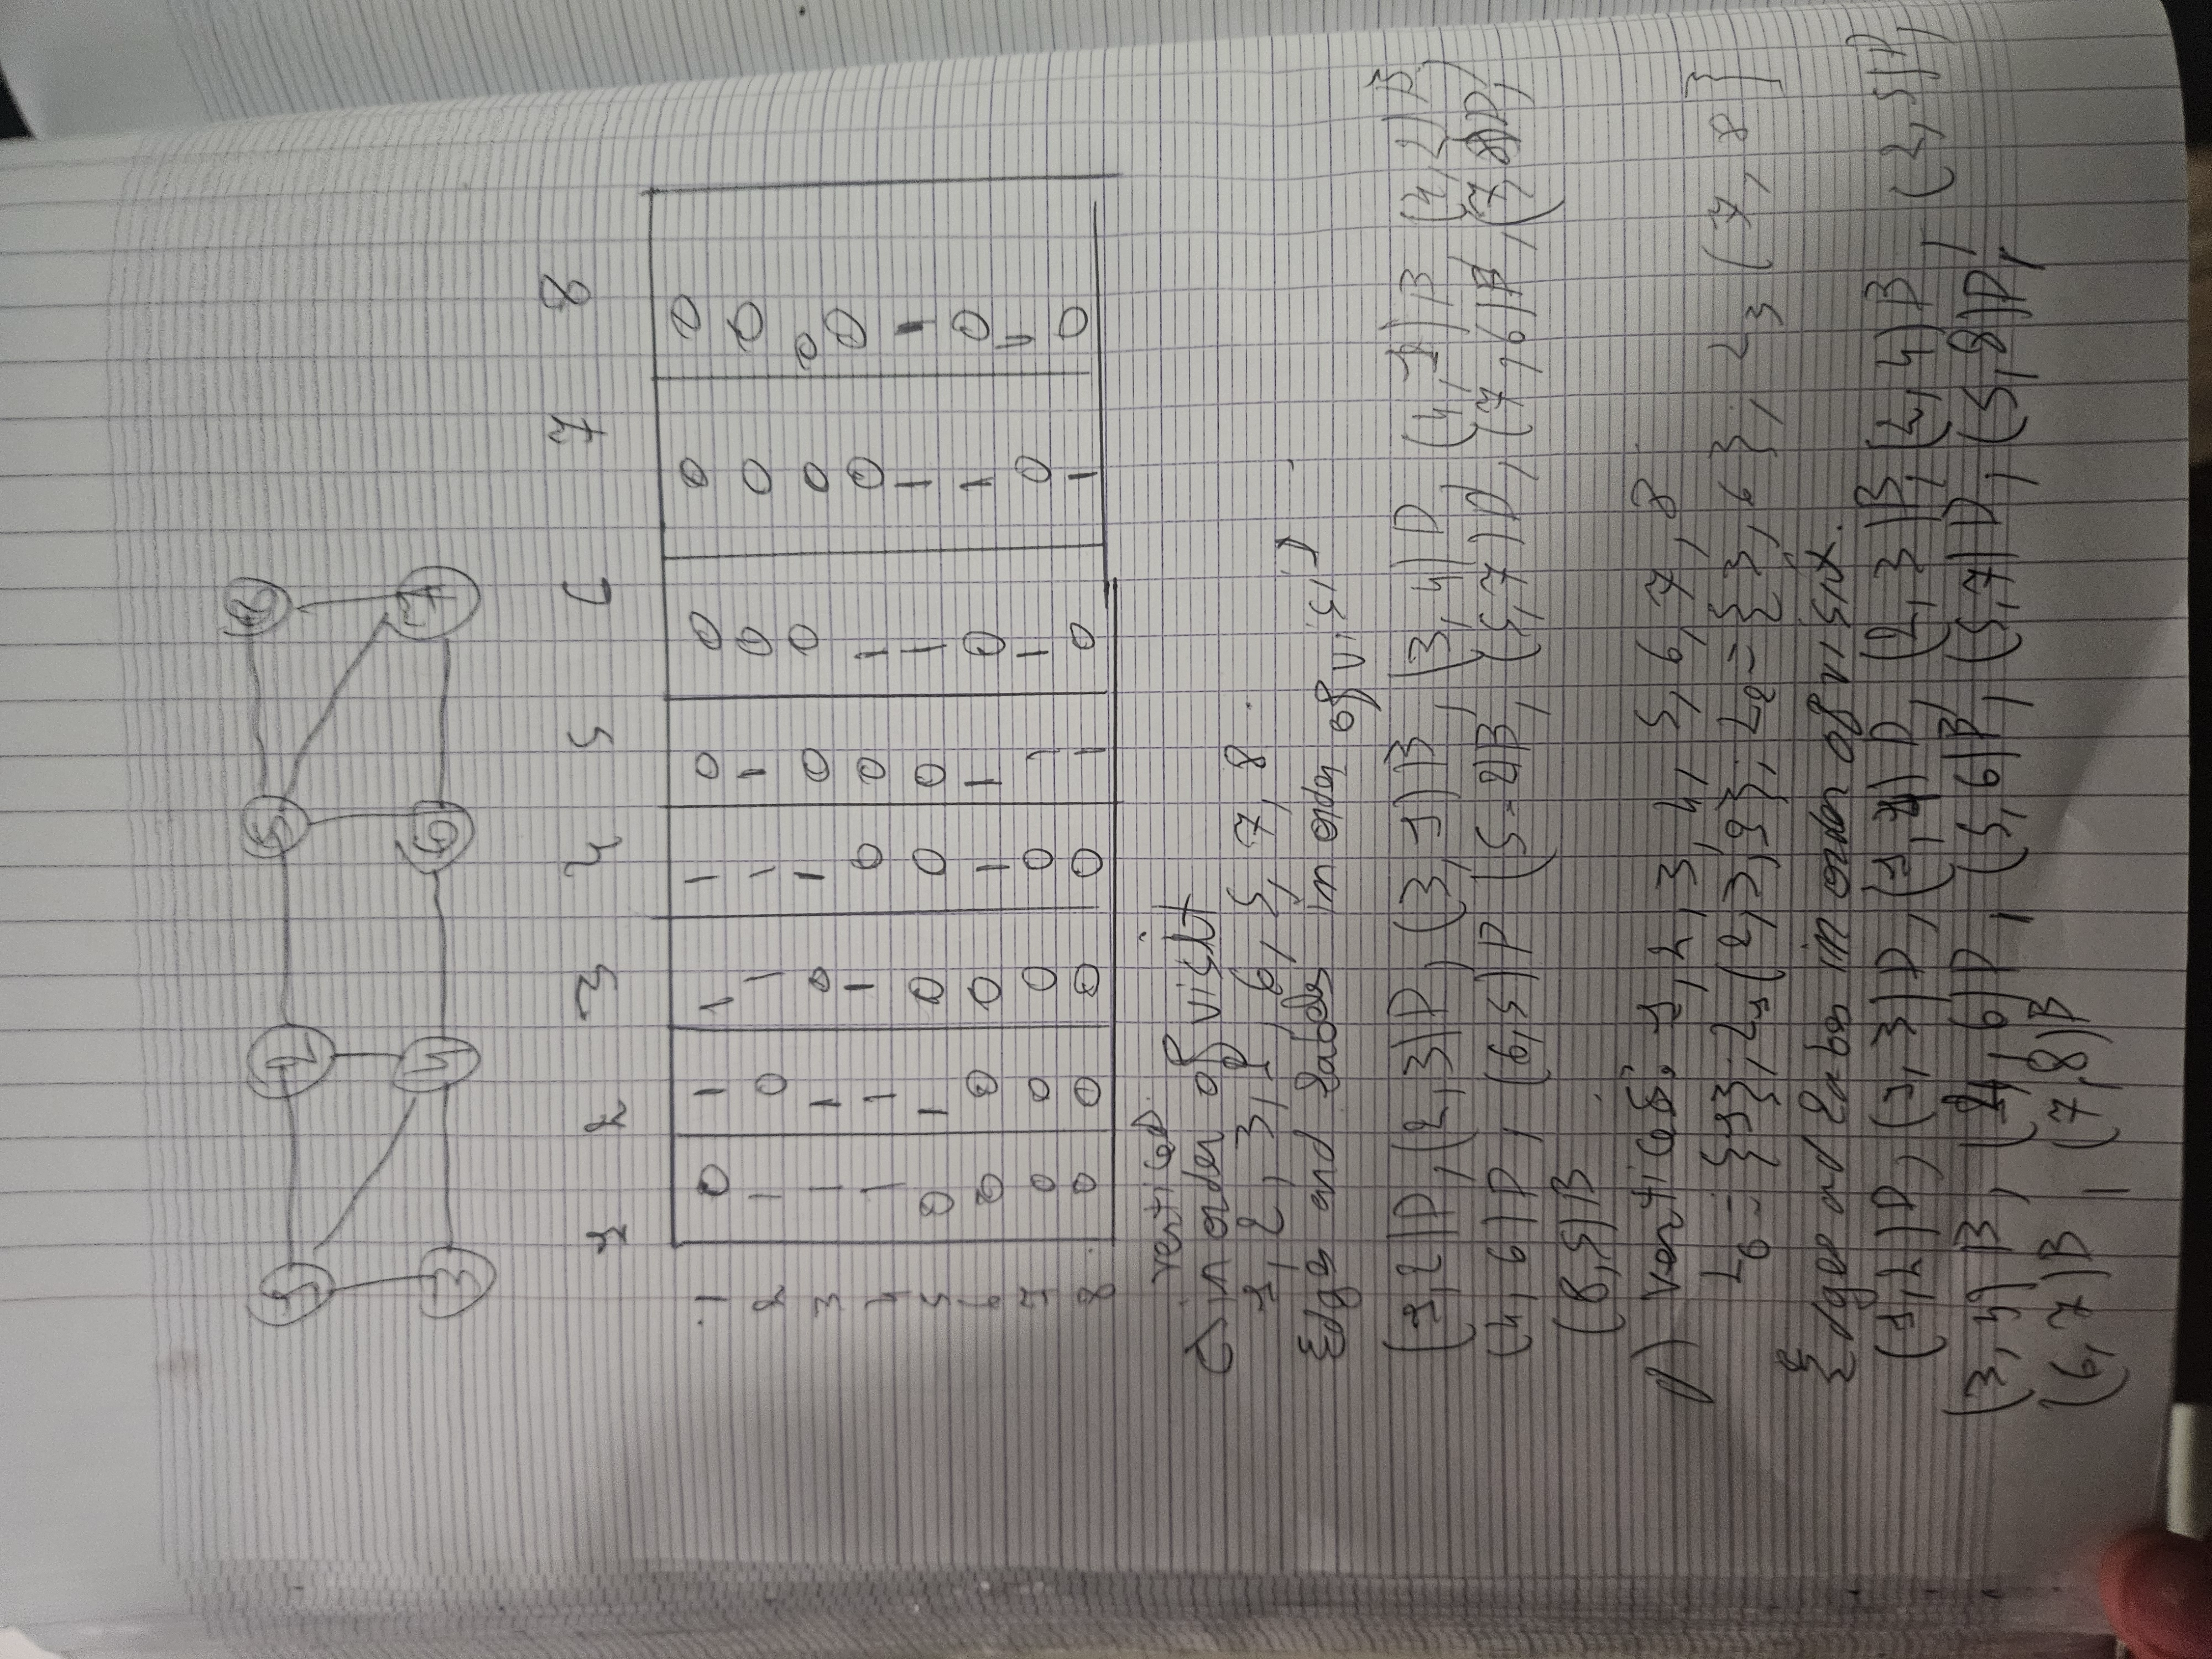 1 2 5 8
3 4 6 7
1 2 3 4 5 6 7 8
1 0 1 1 1 0 0 0 0
2 1 0 1 1 1 0 0 0
3 1 1 0 1 0 0 0 0
4 1 1 1 0 0 1 0 0
5 0 1 0 0 0 1 1 1
6 0 0 0 1 1 0 1 0
7 0 0 0 0 1 1 0 1
8 0 0 0 0 1 0 1 0
vertices
C in order of visit
1, 2, 3, 4, 6, 5, 7, 8.
Edges and labels in order of visit
(1,2)|D, (2,3)|D, (3,1)|B, (3,4)|D (4,1)|B (4,2)|B
(4,6)|D, (6,5)|D (5-2)B, (5,7)D, (7,6)|B, (7,8)|D,
(8,5)|B.
D) vertices: 1, 2, 3, 4, 5, 6, 7, 8
L0 = {1}; L1 (2,3,4}, L2 = {5,6}, L3 (7,8}
Edges and labes in order of visit.
(1,2)|D, (1,3)|D, (1,4)|D, (2,3)|B, (2,4)|B, (2,5)|D,
(3,4)|B, (4,6)|D, (5,6)B, (5,7)|D, (5,8)|D,
(6,7)|B, (7,8)|B